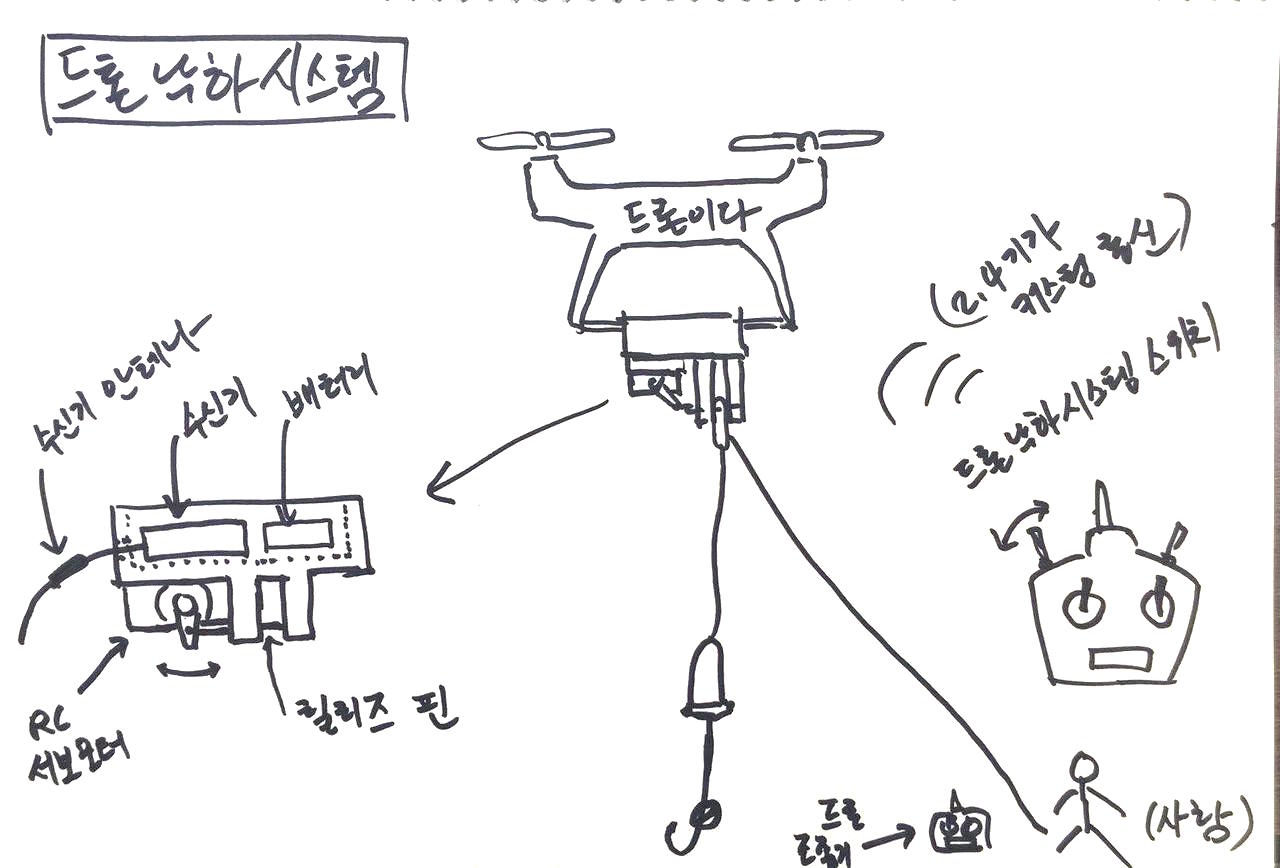 드론 낙하 시스템
드론이다
(2.4기가
커스텀 송신)
드론 낙하 시스템 스위치
수신기 안테나
수신기
배터리
RC
서보모터
릴리즈 핀
드론
조종기
(사람)